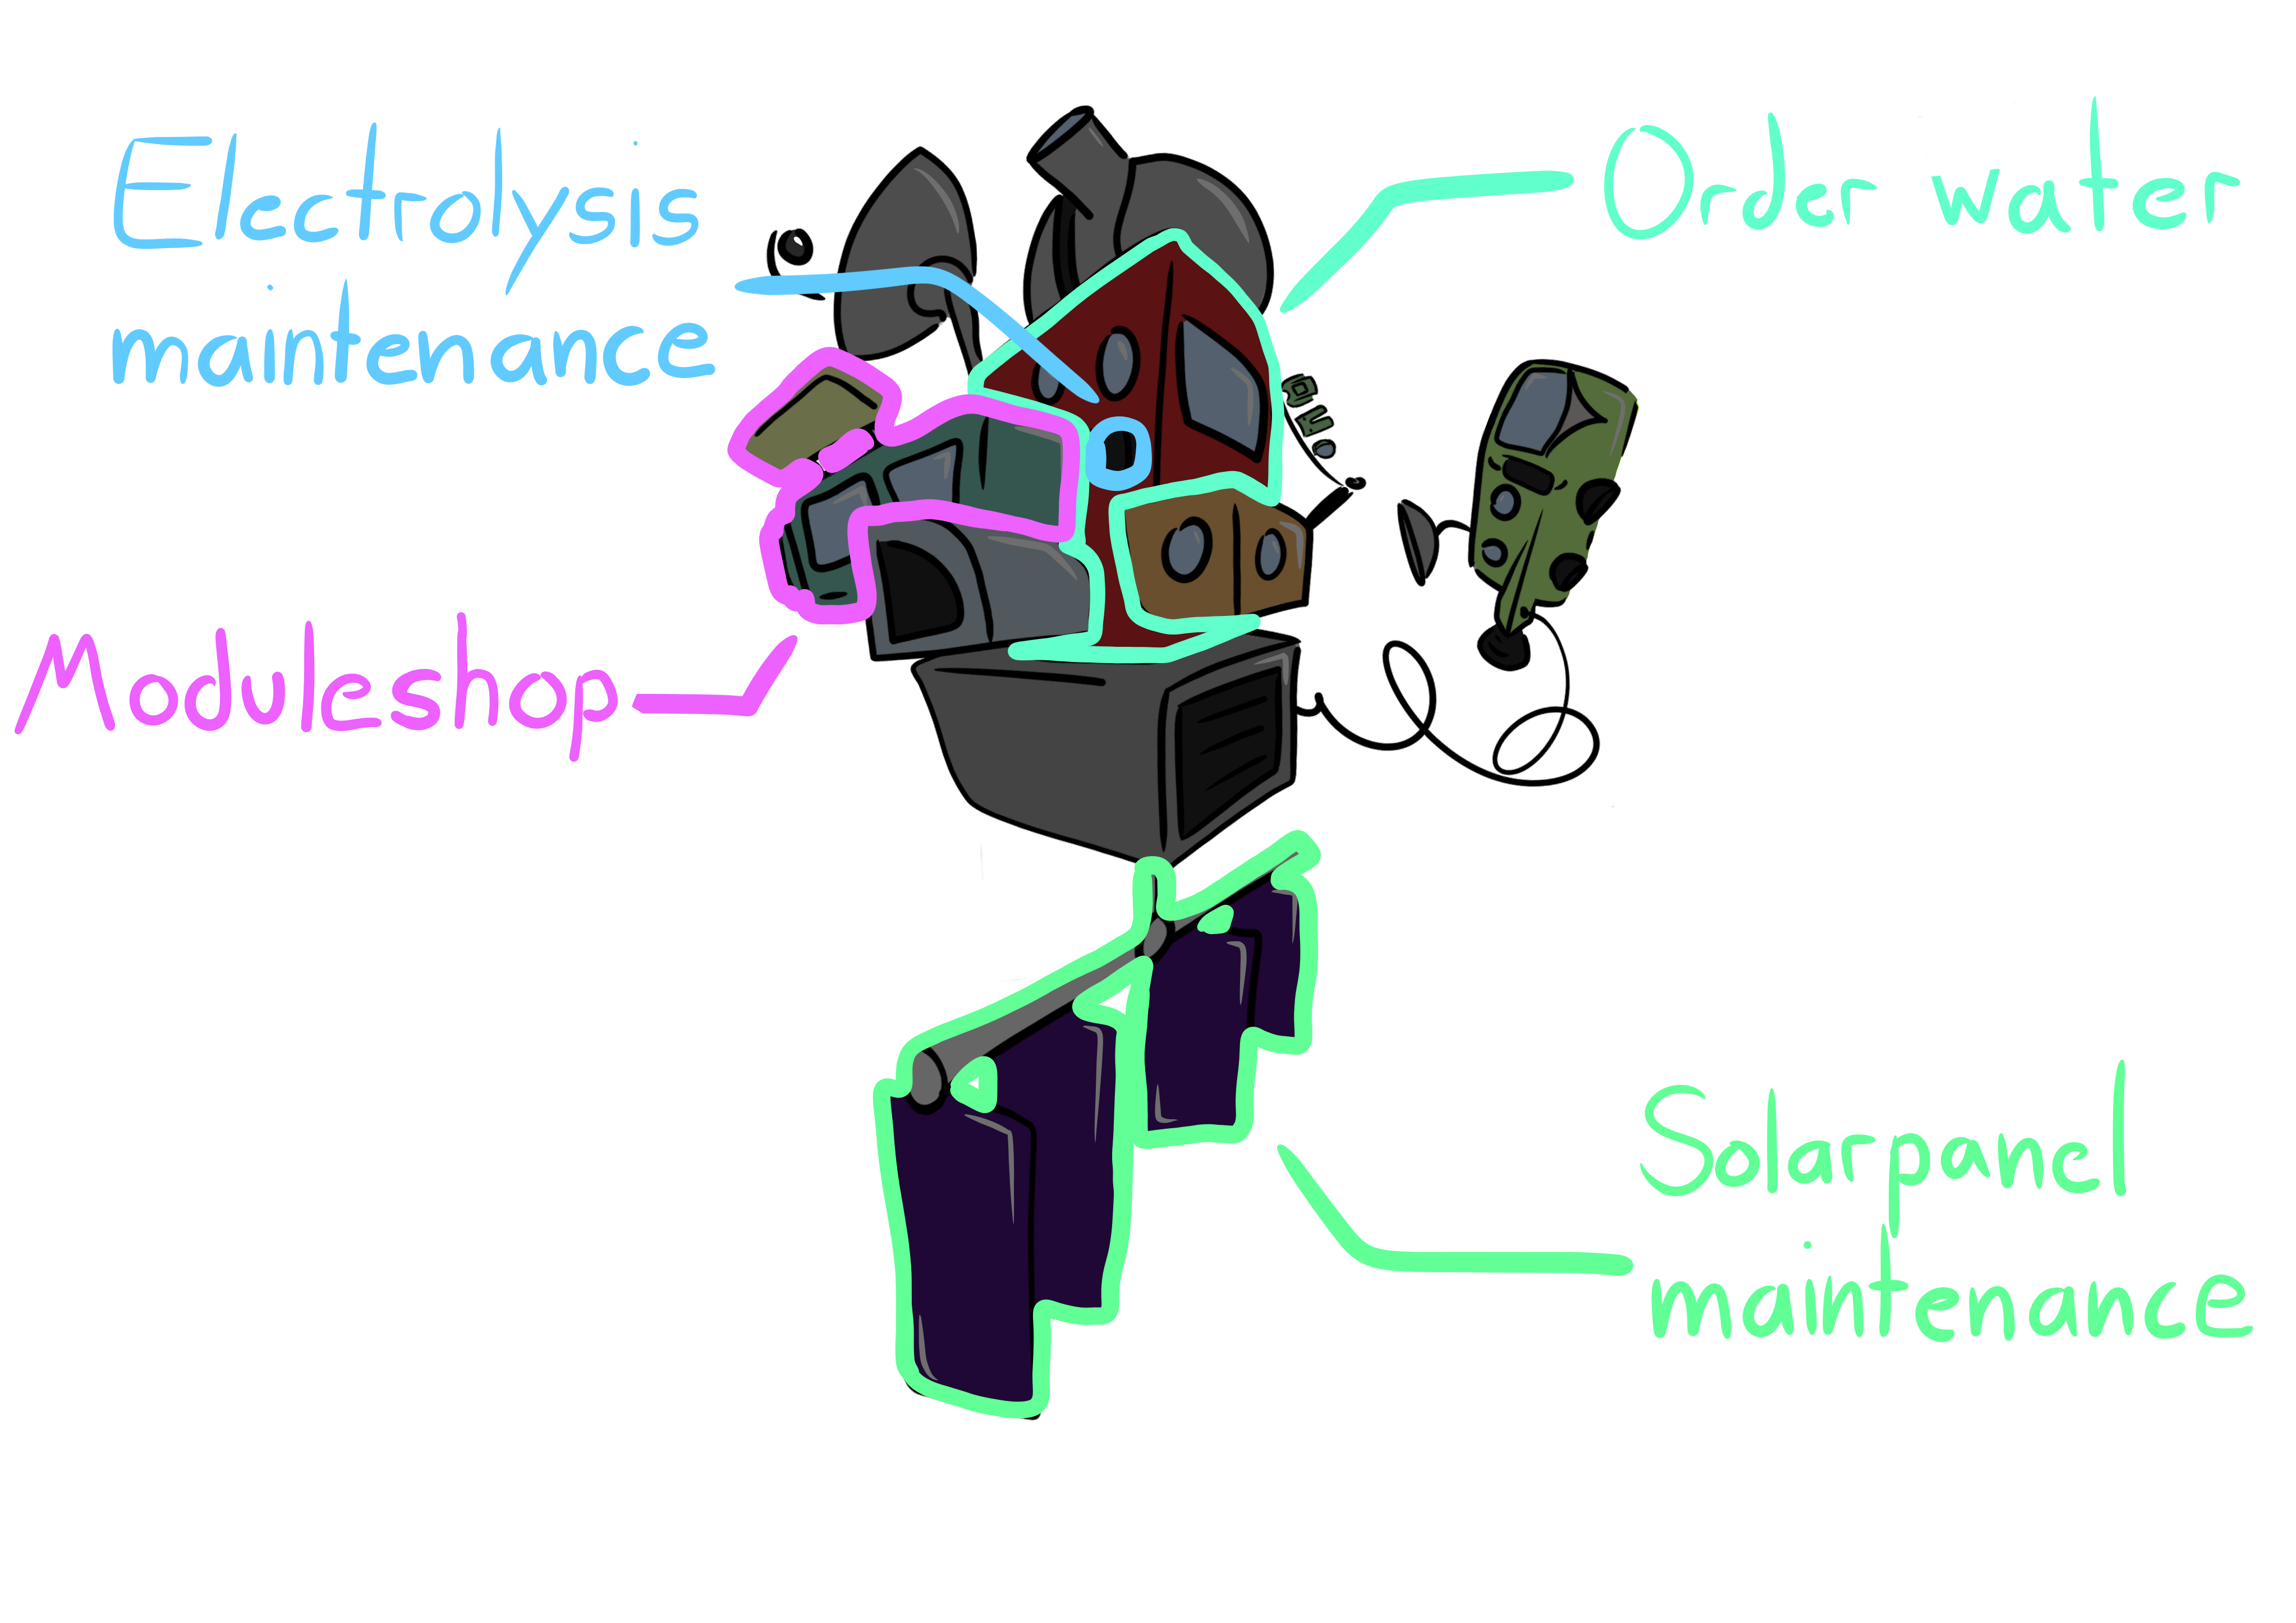 Electrolysis
maintenance
Order water
Moduleshop
Solarpanel
maintenance